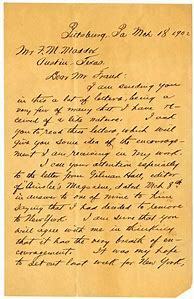 Pittsburg, Pa Mch 18 1902
Mr F. M. Maddox
Austin, Texas.
Dear Mr Frank:
I am sending you
in this a lot of letters, being a
very few of many that I have re-
ceived of a like nature. I ask
you to read these letters which will
give you some idea of the encourage-
ment I am receiving in my work.
I call attention especially
to the letter from Gilman Hall, editor
of Ainslee's Magazine, dated Mch 8th
in answer to one of mine to him
saying that I had decided to remove
to New York. I am sure that you
will agree with me in thinking
that it has the very breath of en-
couragement. It was my hope
to set out last week for New York,